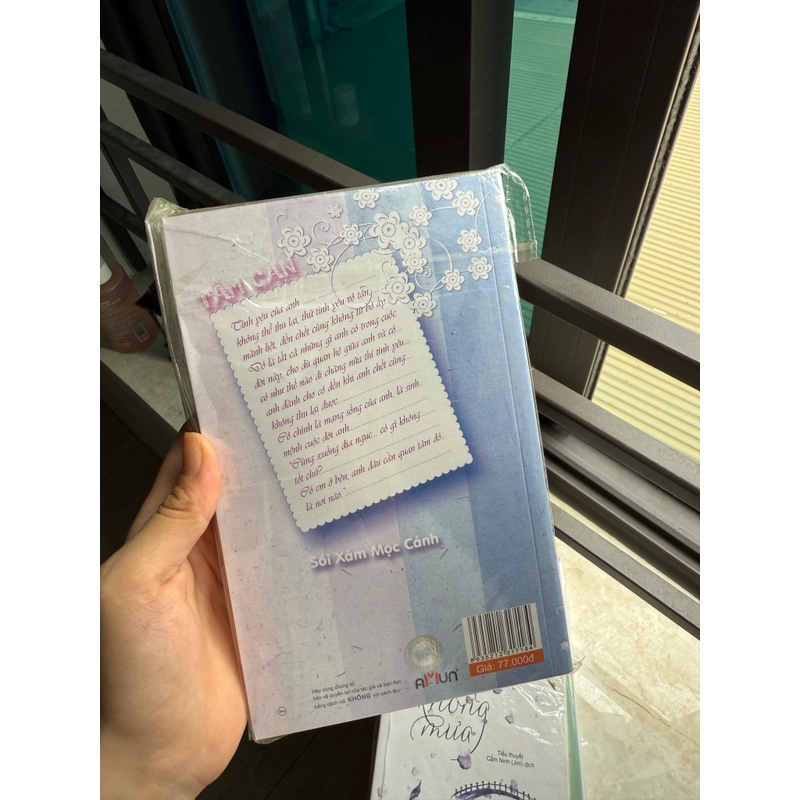 TÂM CAN
Tình yêu của anh
không thể thu lại, thứ tình yêu vô tận,
mãnh liệt, đến chết cũng không từ bỏ ấy.
Đó là tất cả những gì anh có trong cuộc
đời này, cho dù quan hệ giữa anh và cô...
có như thế nào đi chăng nữa thì tình yêu...
anh dành cho cô đến khi anh chết cũng...
không thu lại được.
Cô chính là mạng sống của anh, là sinh...
mệnh cuộc đời anh.
"Cùng xuống địa ngục... có gì không......
tốt chứ?
Có em ở bên, anh đâu cần quan tâm đó..
là nơi nào."
Sói Xám Mọc Cánh
Hãy cùng chúng tôi
bảo vệ quyền lợi của tác giả và bạn đọc
bằng cách nói KHÔNG với sách lậu
AMUN
Giá: 77.000đ
mưa
Tiểu thuyết
Cẩm Ninh (Jini) dịch